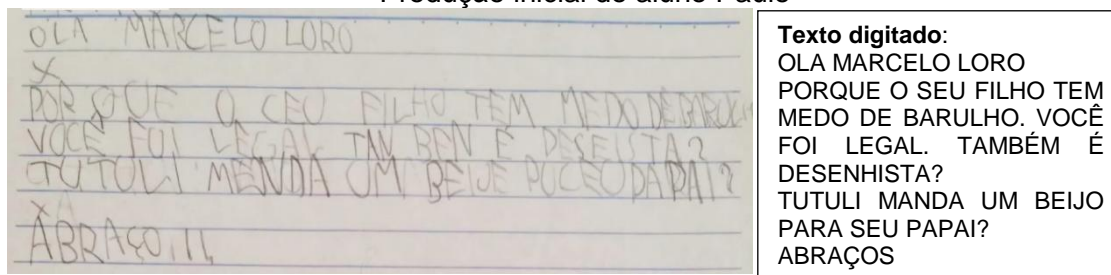 Produção inicial do aluno Paulo
OLA MARCELO LORO
X
POR QUE O CEU FILHO TEM MEDO DE BARULH
VOCÊ FOI LEGAL TAN BEN É DESEISTA?
TUTULI MENDA UM BEIJE PUCEU DAPAI?
X
ABRAÇO.!!
Texto digitado:
OLA MARCELO LORO
PORQUE O SEU FILHO TEM
MEDO DE BARULHO. VOCÊ
FOI LEGAL. TAMBÉM É
DESENHISTA?
TUTULI MANDA UM BEIJO
PARA SEU PAPAI?
ABRAÇOS